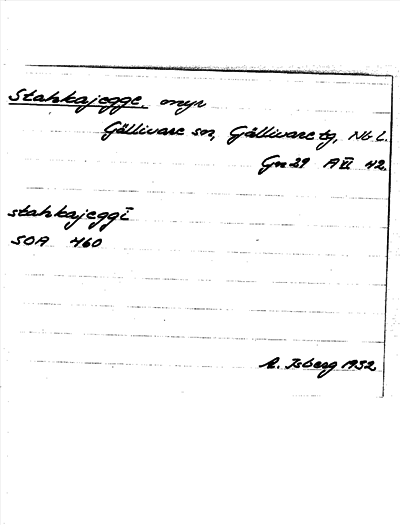 Stahkajegge, myr
Gällivare sn, Gällivare tg, Nb. L.
Gn 29 A VI 42.
stahkajeggī
SOA 460
A. Isberg 1932